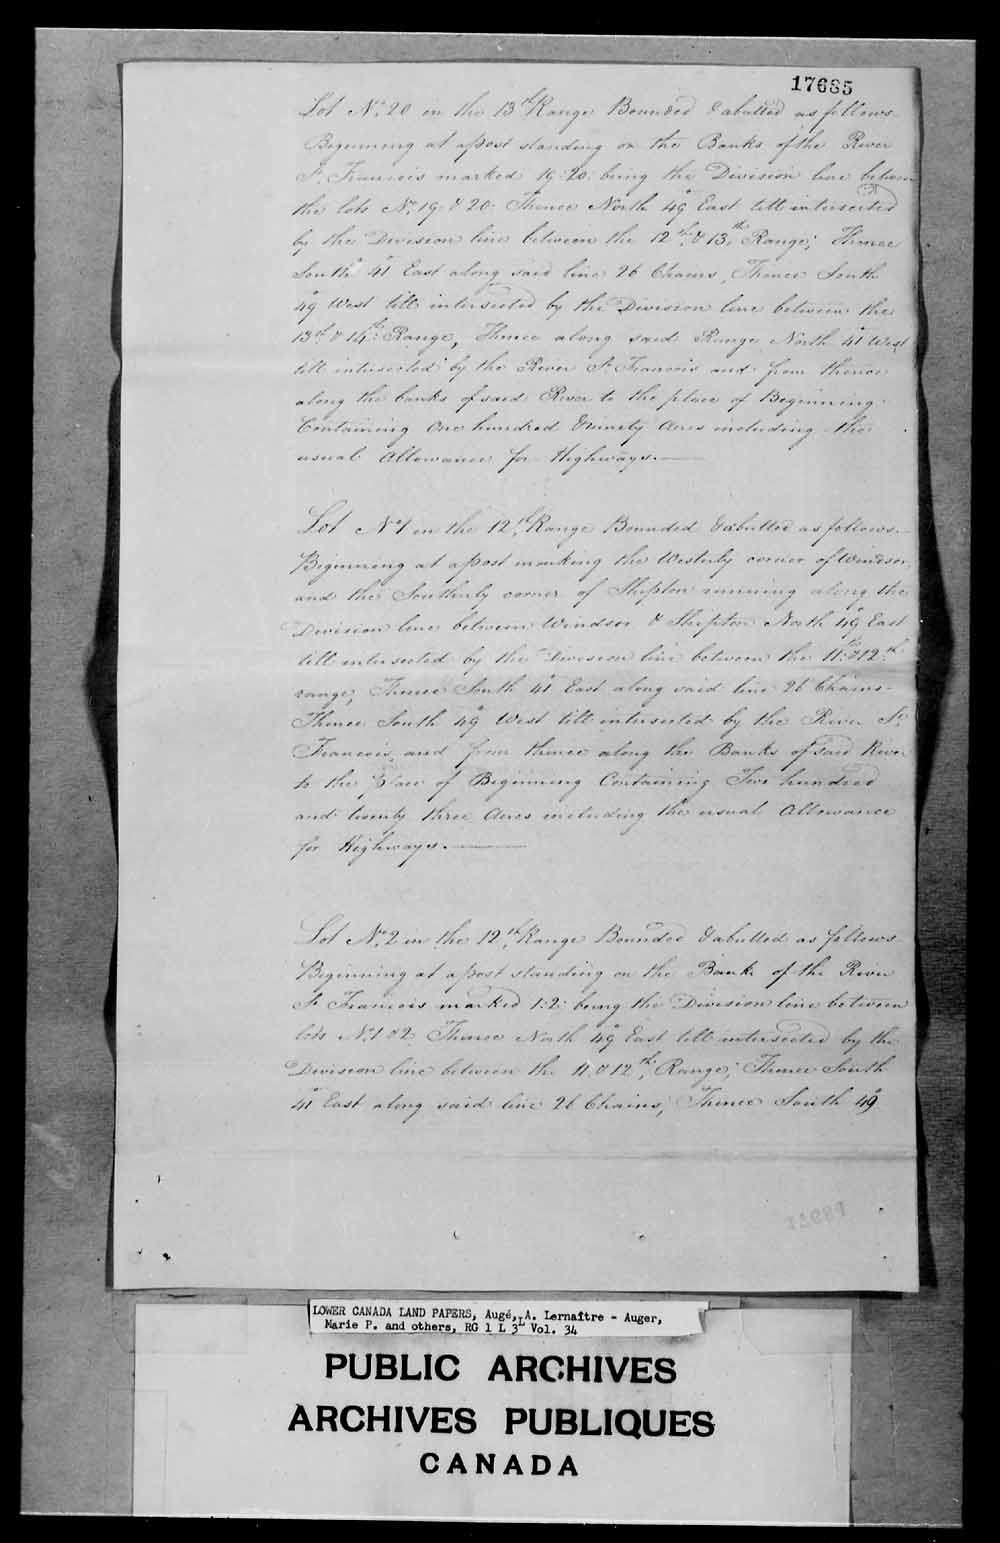 17685
Lot No. 20 in the 13th Range Bounded & abutted as follows
Beginning at a post standing on the Banks of the River
St. Francois marked 19:20: being the Division line between
the lots No. 19 & 20. Thence North 49° East till intersected
by the Division line between the 12th & 13th Range; Thence
South 41° East along said line 26 Chains, Thence South
49 West till intersected by the Division line between the
13th & 14th Range, Thence along said Range North 41° West
till intersected by the River St. Francois and from thence
along the banks of said River to the place of Beginning.
Containing One hundred & ninety Acres including the
usual Allowance for Highways.
Lot No. 1 in the 12th Range Bounded & abutted as follows.
Beginning at a post marking the Westerly corner of Windsor
and the Southerly corner of Shipton running along the
Division line between Windsor & Shipton North 49° East
till intersected by the Division line between the 11th & 12th
range, Thence South 41° East along said line 26 Chains
Thence South 49° West till intersected by the River St.
Francois, and from thence along the Banks of said River
to the Place of Beginning Containing Two hundred
and twenty three Acres including the usual Allowance
for Highways.
Lot No. 2 in the 12th Range Bounded & abutted as follows
Beginning at a post standing on the Bank of the River
St Francois marked 1:2: being the Division line between
lots No. 1 & 2 Thence North 49° East till intersected by the
Division line between the 11 & 12th Range; Thence South
41° East along said line 26 Chains, Thence South 49°
LOWER CANADA LAND PAPERS, Augé, A. Lernaître - Auger,
Marie P. and others, RG 1 L 3L Vol. 34
PUBLIC ARCHIVES
ARCHIVES PUBLIQUES
CANADA